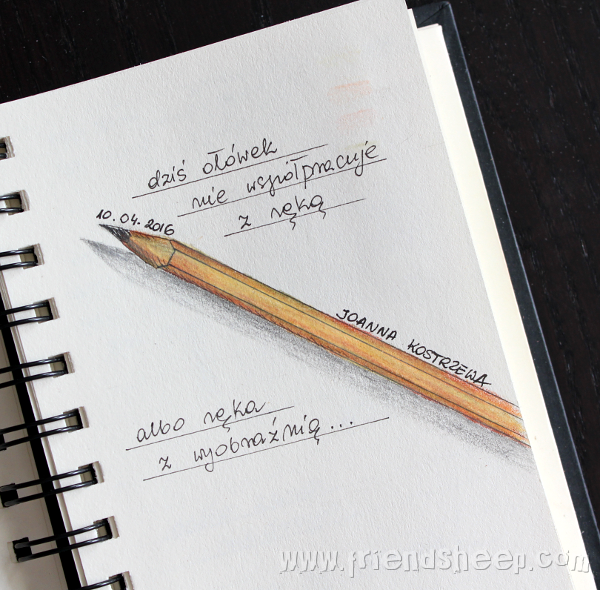 dziś ołówek
nie współpracuje
z ręką
10.04.2016
JOANNA KOSTRZEWA
albo ręka
z wyobraźnią...
www.friendsheep.com